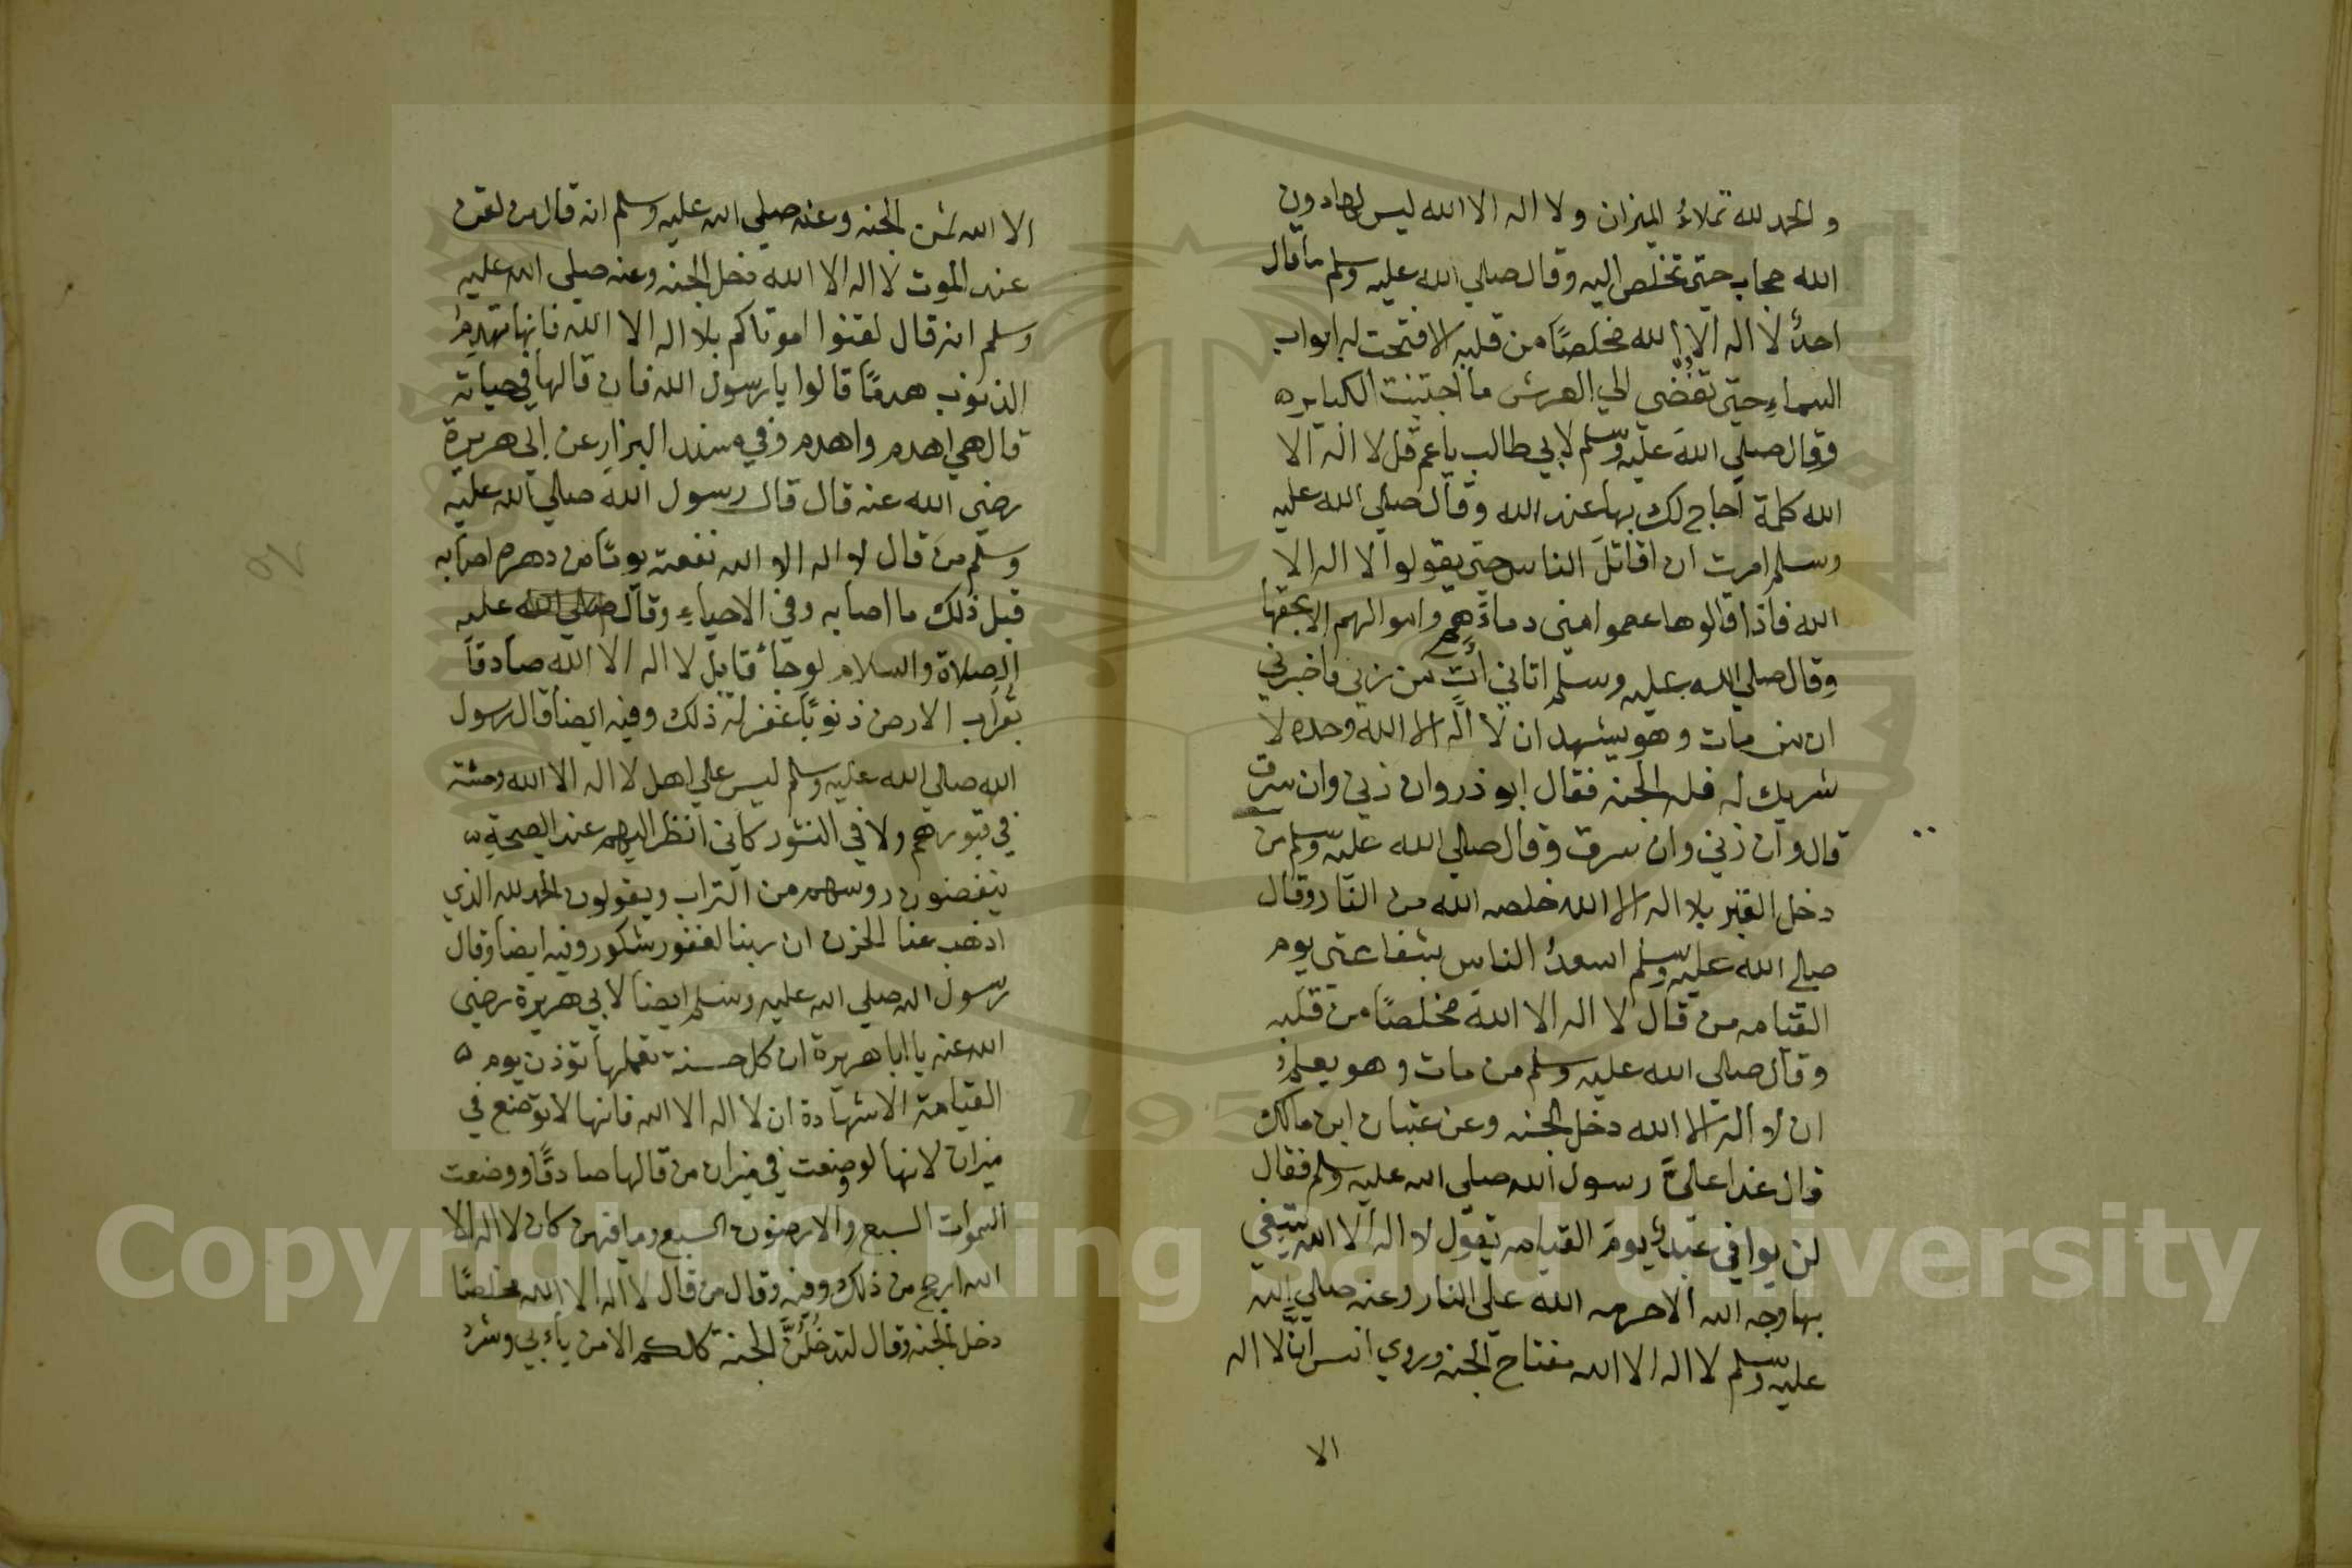 والحمد لله تملاءُ الميزان ولا اله الا الله ليس لها دون
الله حجاب حتى تخلص اليه وقال صلي الله عليه وسلم ما قال
احدٌ لا اله الا الله مخلصًا من قلبه الا فتحت له ابواب
السماء حتى تفضي الي العرش ما اجتنبت الكباير ه
وقال صلي الله عليه وسلم لابي طالب يا عم قل لا اله الا
الله كلمة احاج لك بها عند الله وقال صلي الله عليه
وسلم امرت ان اقاتل الناس حتى يقولوا لا اله الا
الله فاذا قالوها عصموا مني دماءهم واموالهم الا بحقها
وقال صلي الله عليه وسلم اتاني اتٍ من ربي فاخبرني
ان من مات وهو يشهد ان لا اله الا الله وحده لا
شريك له فله الجنه فقال ابو ذر وان زني وان سرق
قال وان زني وان سرق وقال صلي الله عليه وسلم من
دخل القبر بلا اله الا الله خلصه الله من النار وقال
صلي الله عليه وسلم اسعدُ الناس بشفاعتي يوم
القيامه من قال لا اله الا الله مخلصًا من قلبه
وقال صلي الله عليه وسلم من مات وهو يعلمُ
ان لا اله الا الله دخل الجنه وعن عتبان ابن مالك
قال غدا عليَّ رسول الله صلي الله عليه وسلم فقال
لن يوافي عبدٌ يوم القيامه يقول لا اله الا الله يبتغي
بها وجه الله الا حرمه الله علي النار وعنه صلي الله
عليه وسلم لا اله الا الله مفتاح الجنه وروي انس ان لا اله
الا
الا الله ثمن الجنه وعنه صلي الله عليه وسلم انه قال من لقن
عند الموت لا اله الا الله دخل الجنه وعنه صلي الله عليه
وسلم انه قال لقنوا موتاكم بلا اله الا الله فانها تهدم
الذنوب هدمًا قالوا يا رسول الله فان قالها في حياته
قال هي اهدم واهدم وفي مسند البزار عن ابي هريرة
رضي الله عنه قال قال رسول الله صلي الله عليه
وسلم من قال لا اله الا الله نفعته يومًا من دهره اصابه
قبل ذلك ما اصابه وفي الاحياءِ وقال عليه
الصلاة والسلام لو جاءَ قايل لا اله الا الله صادقاً
بقراب الارض ذنوبًا غفر له ذلك وفيه ايضاً قال رسول
الله صلي الله عليه وسلم ليس علي اهل لا اله الا الله وحشة
في قبورهم ولا في النشور كاني انظر اليهم عند الصيحة
ينفضون روسهم من التراب ويقولون الحمد لله الذي
اذهب عنا الحزن ان ربنا لغفور شكور وفيه ايضاً وقال
رسول الله صلي الله عليه وسلم ايضاً لابي هريرة رضي
الله عنه يا ابا هريرة ان كل حسنة تعملها توزن يوم ه
القيامة الا شهادة ان لا اله الا الله فانها لا توضع في
ميزان لانها لو وضعت في ميزان من قالها صادقًا ووضعت
السموات السبع والارضون السبع وما فيهن كان لا اله الا
الله ارجح من ذلك وفيه وقال من قال لا اله الا الله مخلصًا
دخل الجنه وقال لتدخلنَّ الجنة كلكم الا من يأبي وشرد